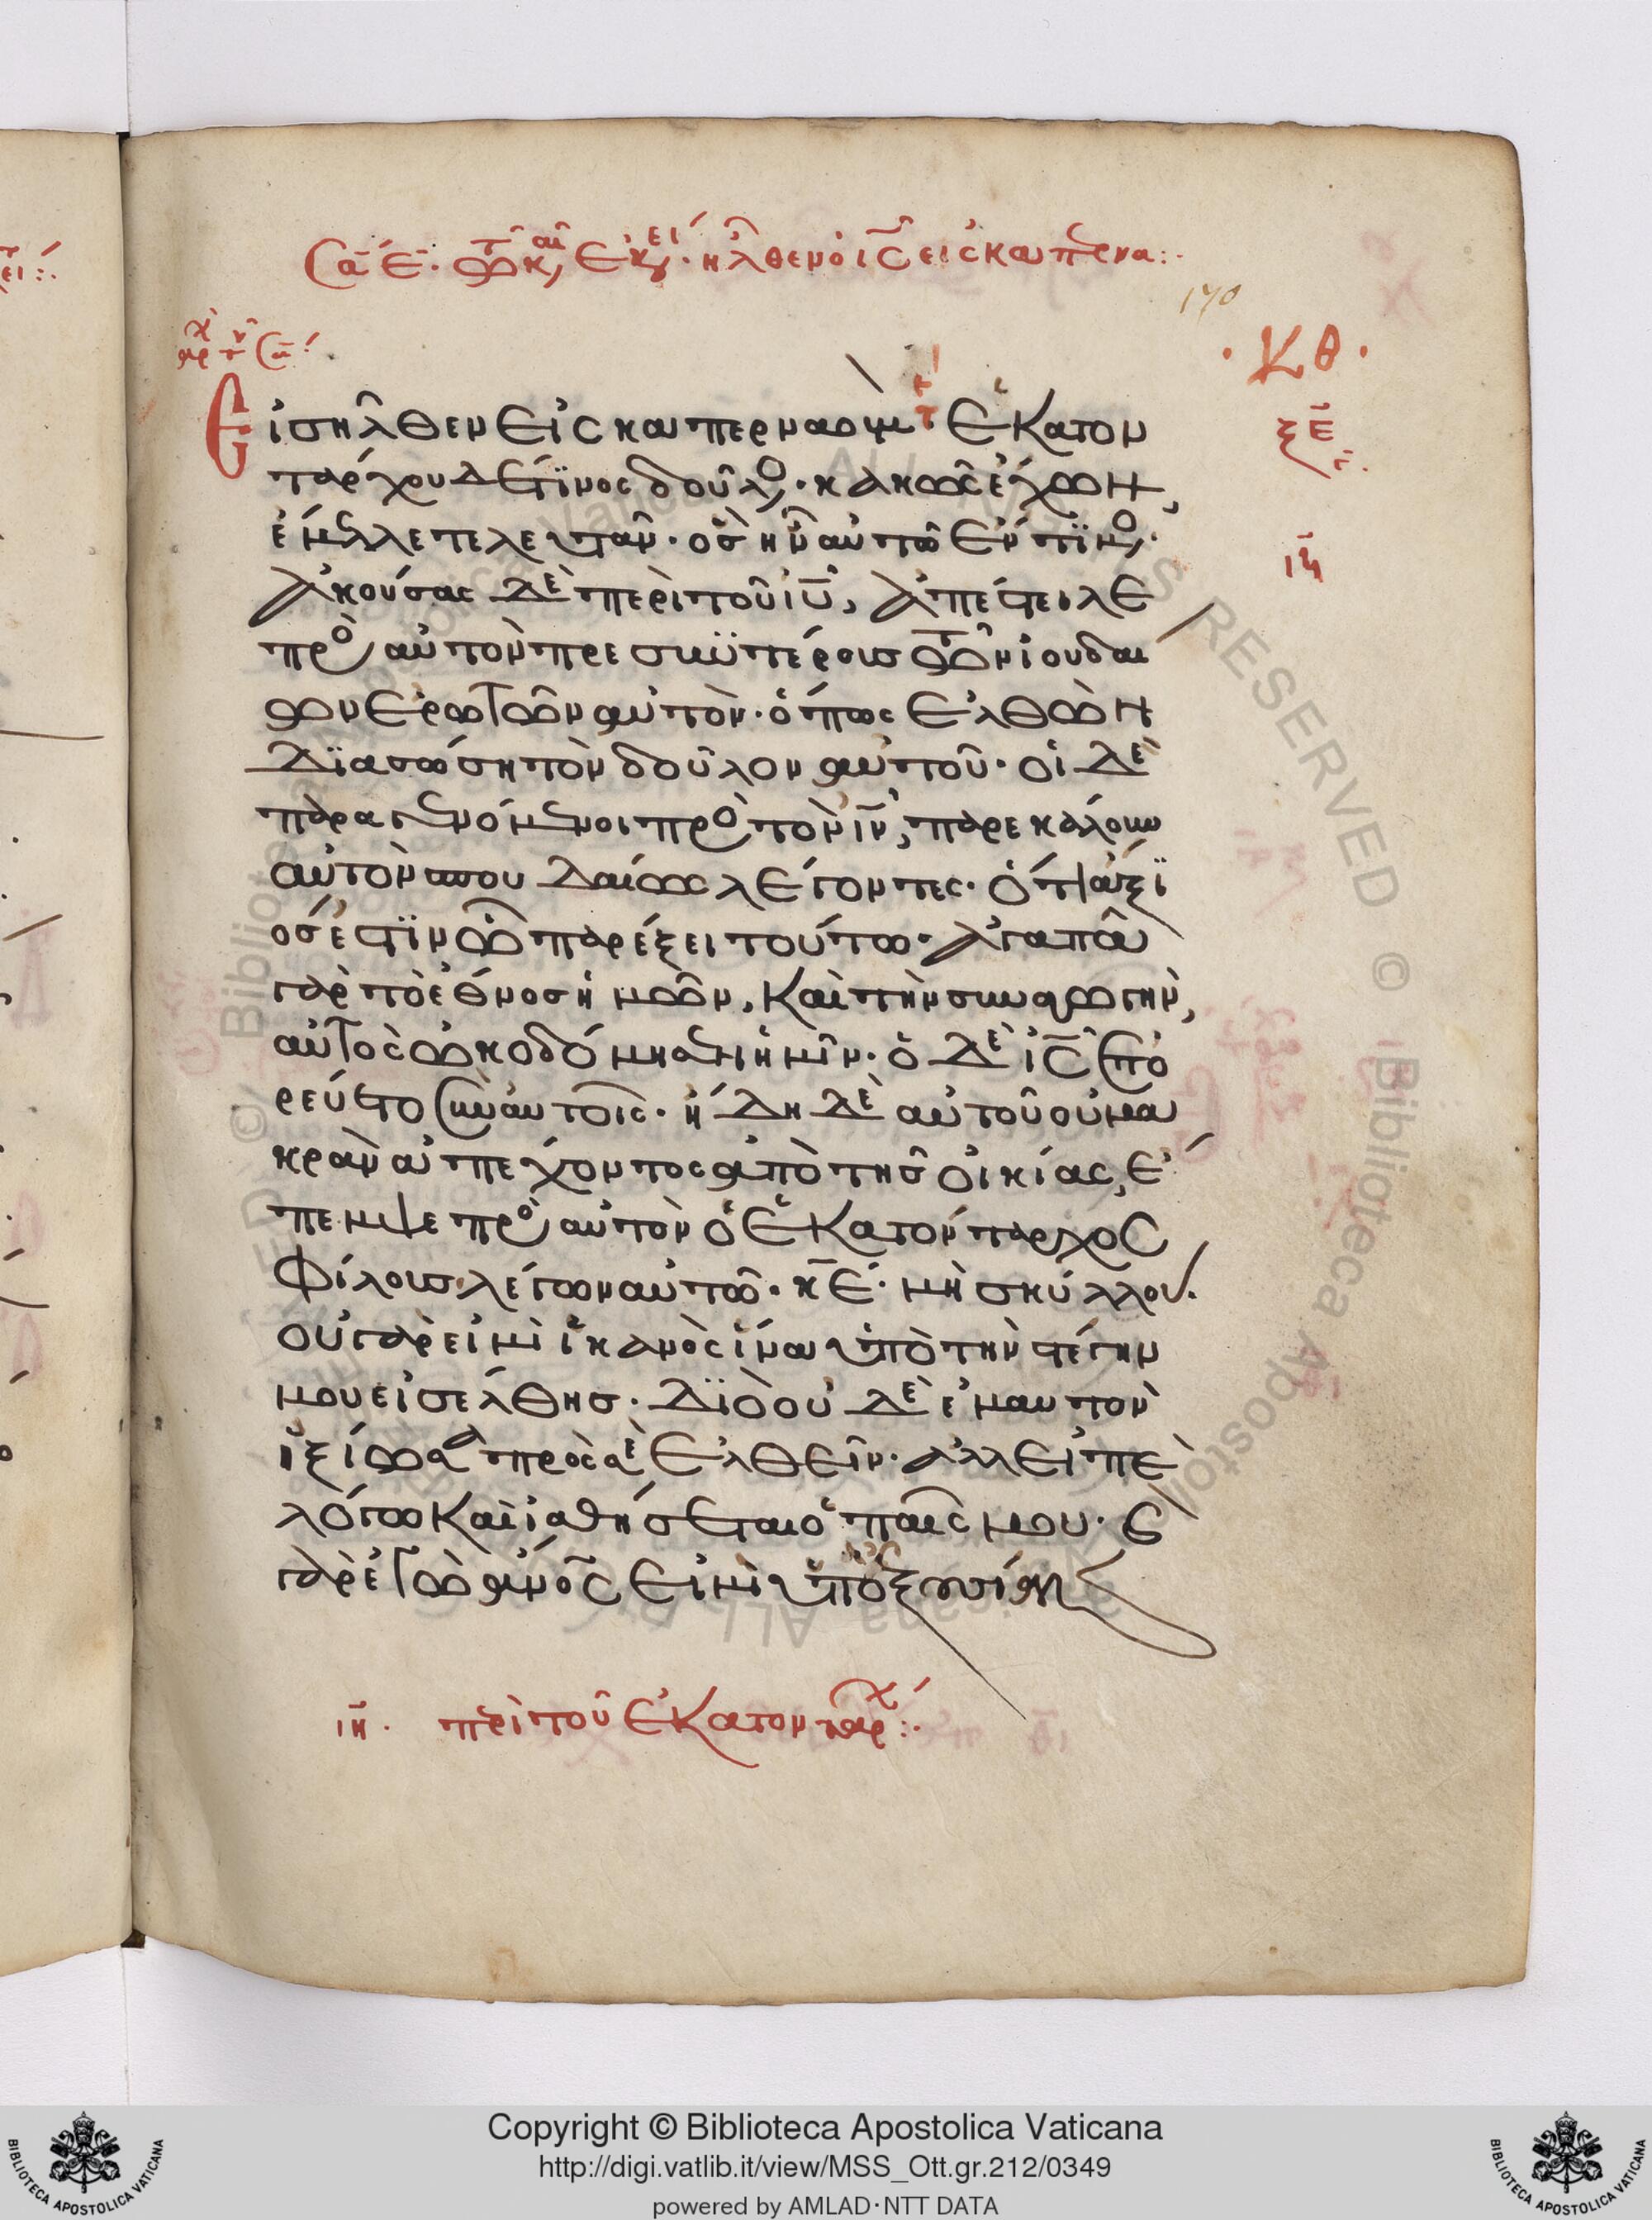 Σα ε τῷ καιρῷ ἐκείνῳ ἦλθεν ὁ ις εἰς καπερνα:
170
ἀρχ τ Σα
· κθ ·
Εἰσῆλθεν εἰς καπερναοὺμ ἑκατον
ξε
ταρχου δέ τινος δοῦλος· κακῶς ἔχων,
ἔμελλε τελευτᾶν· ὃς ἦν αὐτῶ ἔντιμος·
ιη
ἀκούσας δὲ περὶ τοῦ ιυ, ἀπέστειλε
πρὸς αὐτὸν πρεσβυτέρους τῶν ἰουδαί
ων ἐρωτῶν αὐτὸν· ὅπως ἐλθὼν
διασώση τὸν δοῦλον αὐτοῦ· οἱ δὲ
παραγενόμενοι πρὸς τὸν ιν, παρεκάλουν
αὐτὸν σπουδαίως λέγοντες· ὅτι ἄξι
ός ἐστιν ᾧ παρέξει τούτω· ἀγαπᾶ
γὰρ τὸ ἔθνος ἡμῶν, καὶ τὴν συναγωγὴν,
αὐτὸς ὠκοδόμησεν ἡμῖν· ὁ δὲ ις ἐπο
ρεύετο σὺν αὐτοῖς· ἤδη δὲ αὐτοῦ οὐ μα
κρὰν ἀπέχοντος ἀπὸ τῆς οἰκίας, ἔ
πεμψε πρὸς αὐτὸν ὁ ἑκατόνταρχος
φίλους λέγων αὐτῶ· κε· μὴ σκύλλου·
οὐ γάρ εἰμι ἱκανὸς ἵνα ὑπὸ τὴν στέγην
μου εἰσέλθης· διὸ οὐδὲ ἐμαυτὸν
ἠξίωσα πρὸς σὲ ἐλθεῖν· ἀλλ εἰπὲ
λόγω καὶ ἰαθήσεται ὁ παῖς μου· καὶ
γὰρ ἐγὼ ἄνος εἰμὶ ὑπὸ ἐξουσίαν
ιη· περὶ τοῦ ἑκατοντάρχ:·
Copyright © Biblioteca Apostolica Vaticana
http://digi.vatlib.it/view/MSS_Ott.gr.212/0349
powered by AMLAD·NTT DATA